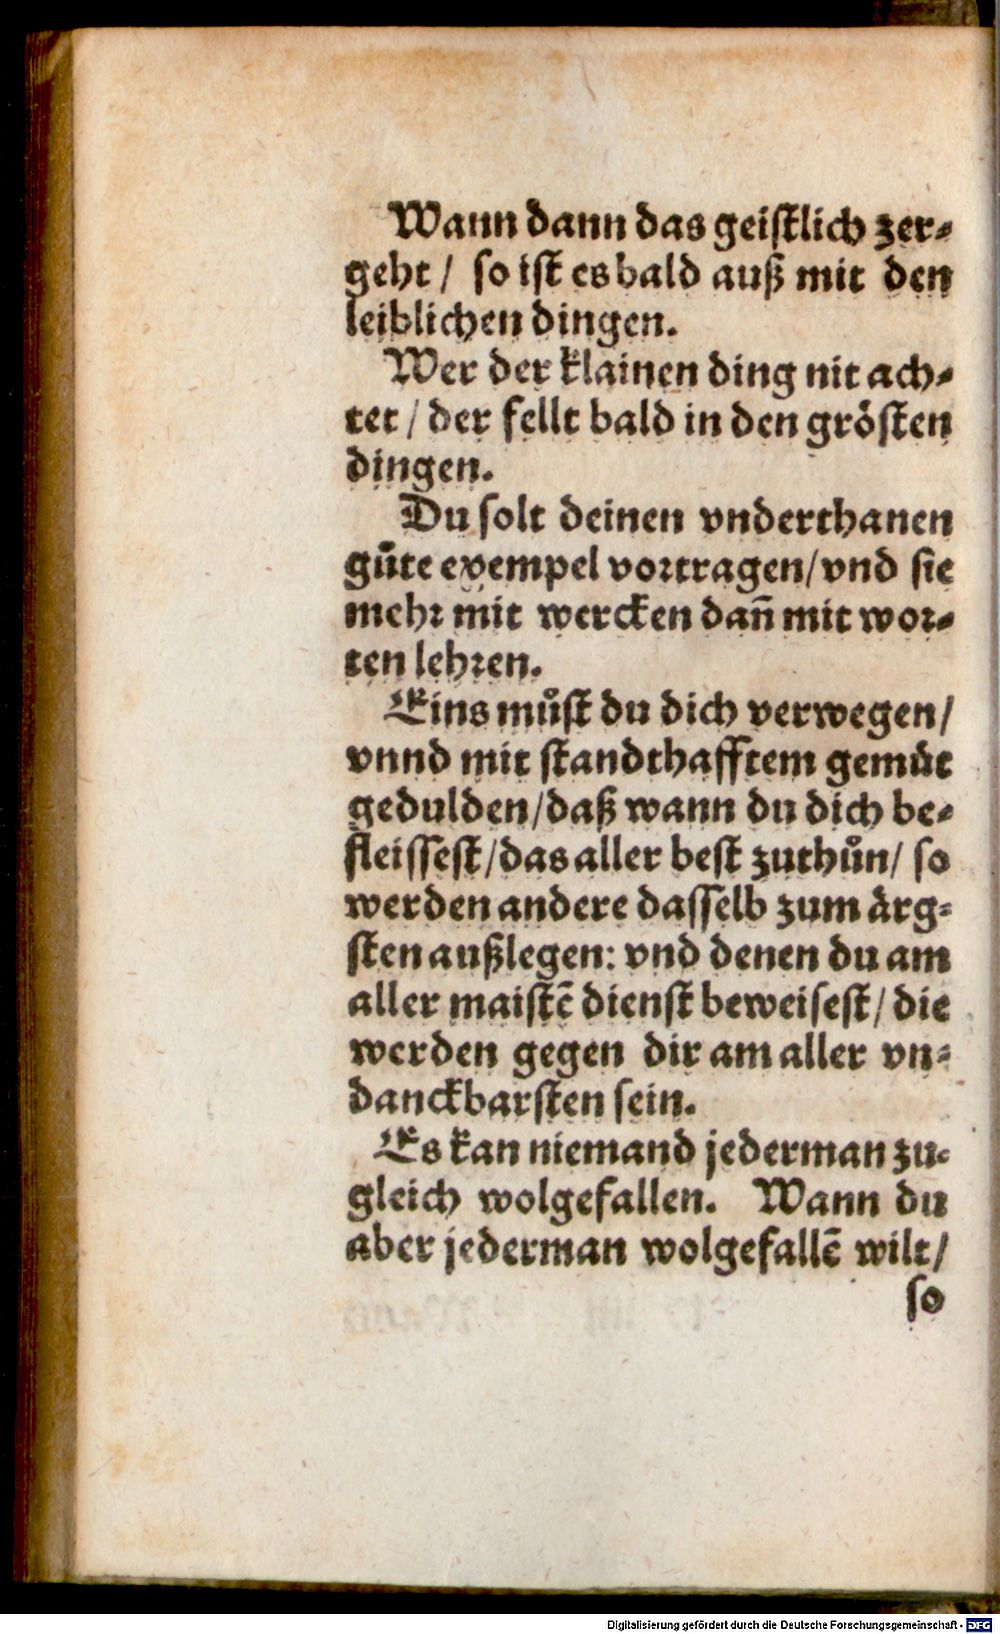 Wann dann das geistlich zer-
geht / so ist es bald auß mit den
leiblichen dingen.
Wer der klainen ding nit ach-
tet / der fellt bald in den grösten
dingen.
Du solt deinen vnderthanen
gůte exempel vortragen / vnd sie
mehr mit wercken dañ mit wor-
ten lehren.
Eins můst du dich verwegen /
vnnd mit standthafftem gemůt
gedulden / daß wann du dich be-
fleissest / das aller best zuthůn / so
werden andere dasselb zum ärg-
sten außlegen: vnd denen du am
aller maistẽ dienst beweisest / die
werden gegen dir am aller vn-
danckbarsten sein.
Es kan niemand jederman zu-
gleich wolgefallen. Wann du
aber jederman wolgefallẽ wilt /
so
Digitalisierung gefördert durch die Deutsche Forschungsgemeinschaft - DFG